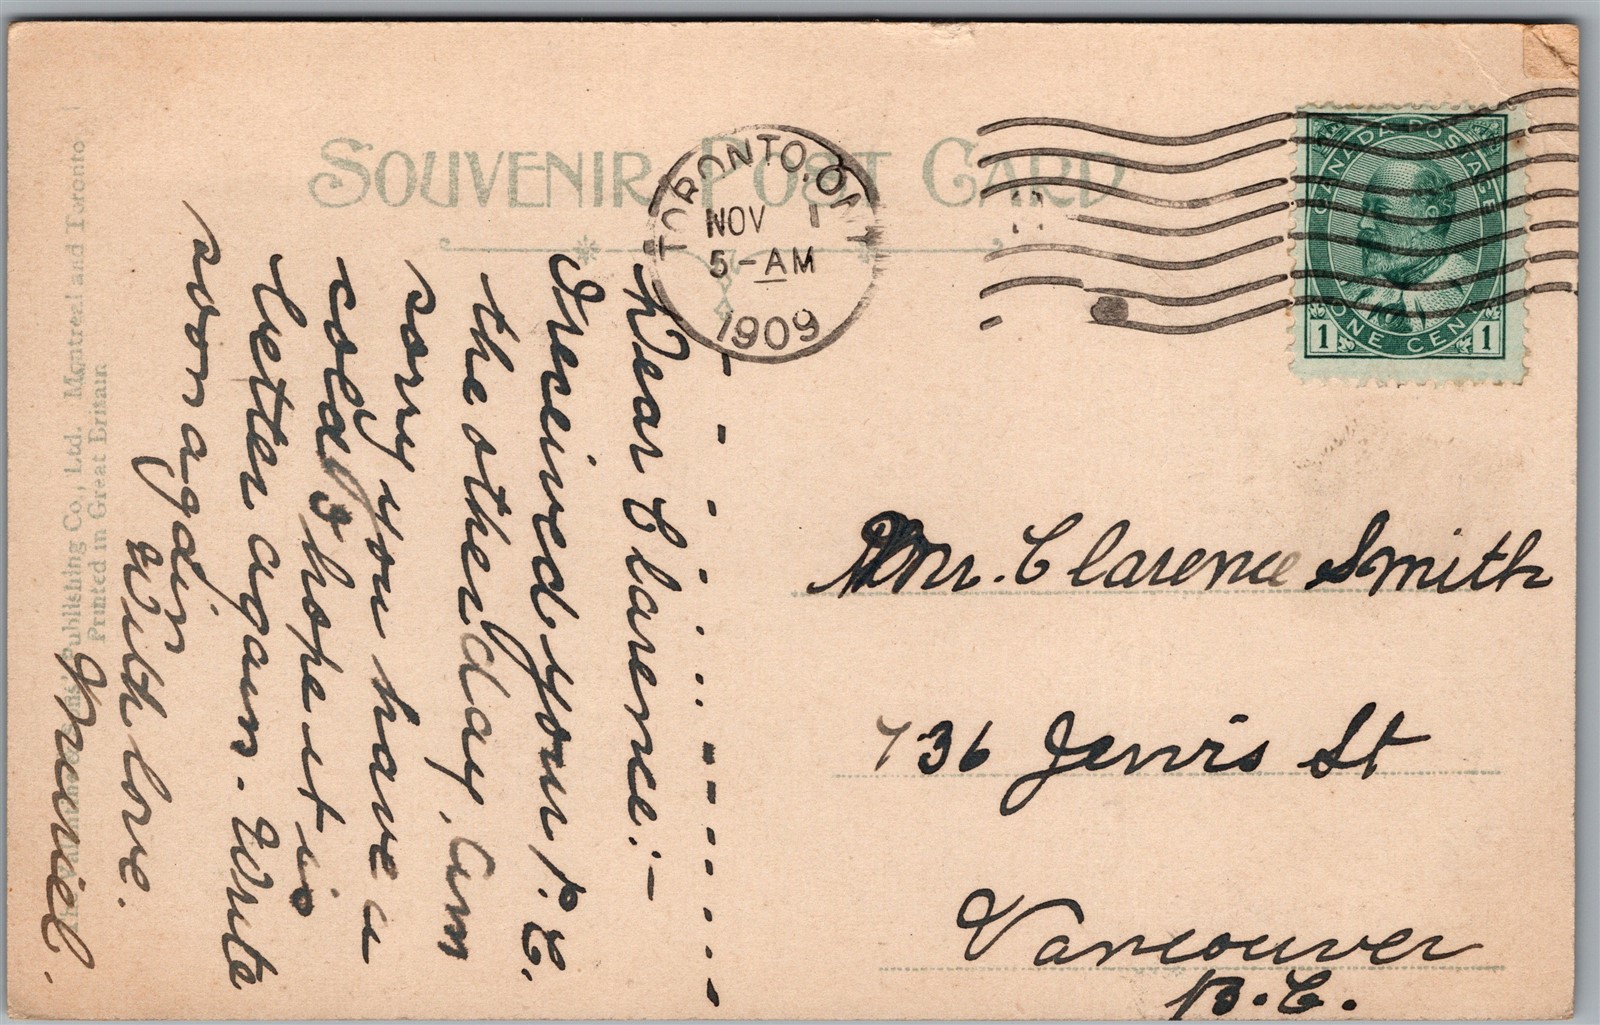 SOUVENIR POST CARD
TORONTO, ONT
NOV 1
5-AM
1909
CANADA POSTAGE
1 ONE CENT 1
Dear Clarence:-
I received your P.C.
the other day. Am
sorry you have a
cold & hope it is
better again. Write
soon again
With love.
Muriel.
Mr. Clarence Smith
736 Jervis St
Vancouver
B.C.
Publishing Co., Ltd. Montreal and Toronto
Printed in Great Britain